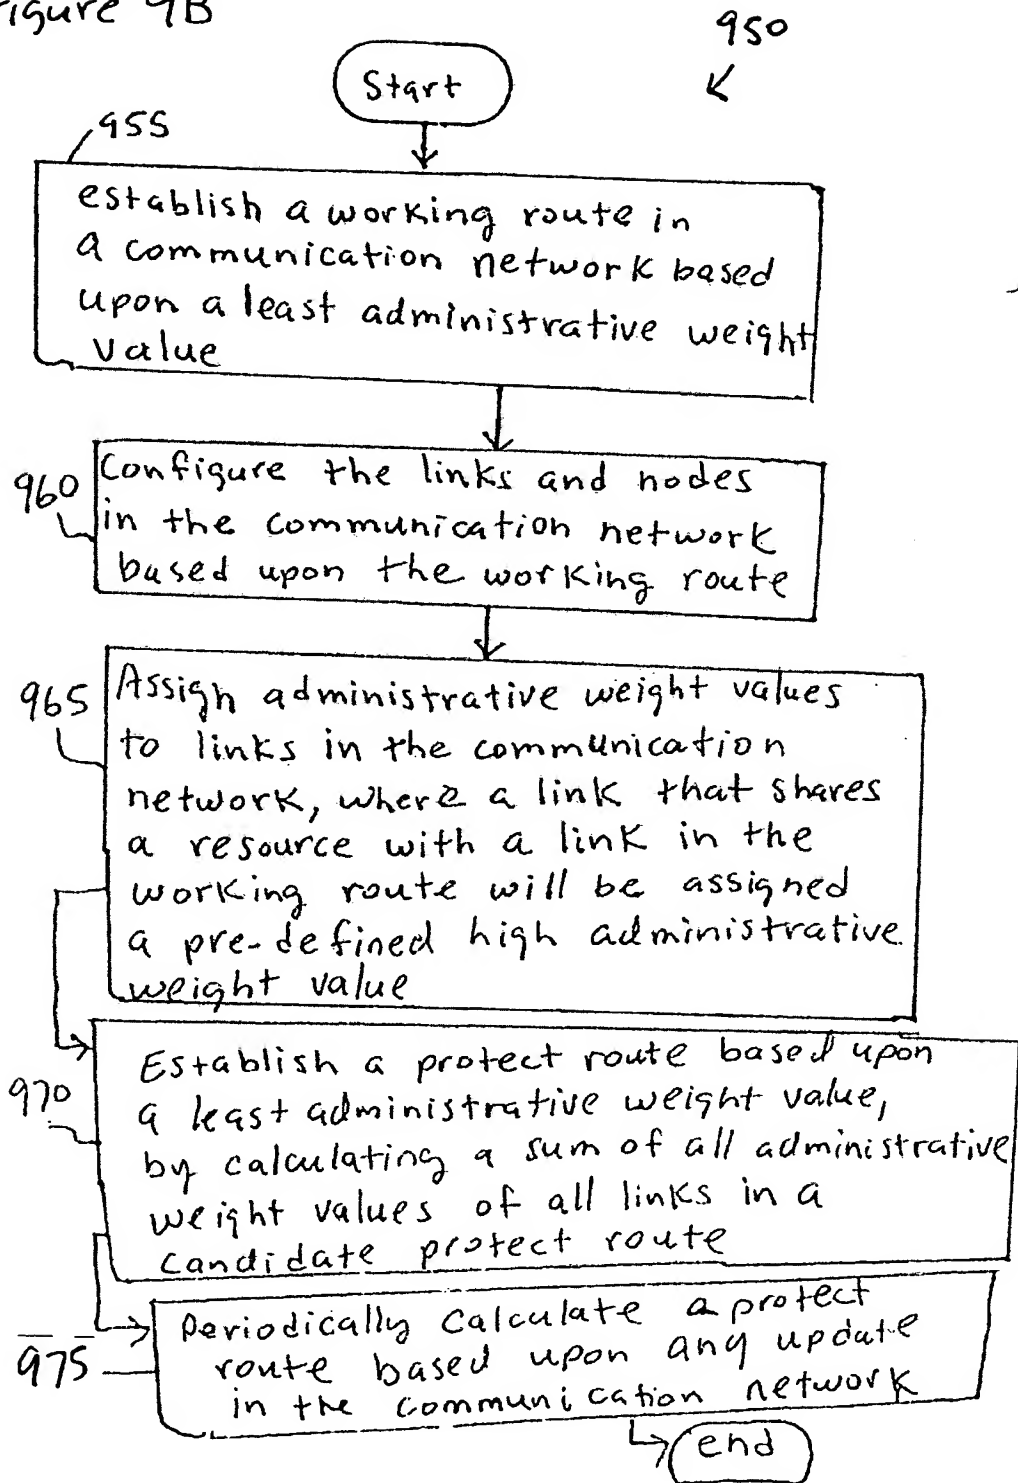 Figure 9B
950
Start
955
establish a working route in
a communication network based
upon a least administrative weight
value
960
Configure the links and nodes
in the communication network
based upon the working route
965
Assign administrative weight values
to links in the communication
network, where a link that shares
a resource with a link in the
working route will be assigned
a pre-defined high administrative
weight value
970
Establish a protect route based upon
a least administrative weight value,
by calculating a sum of all administrative
weight values of all links in a
candidate protect route
975
Periodically Calculate a protect
route based upon any update
in the communication network
end